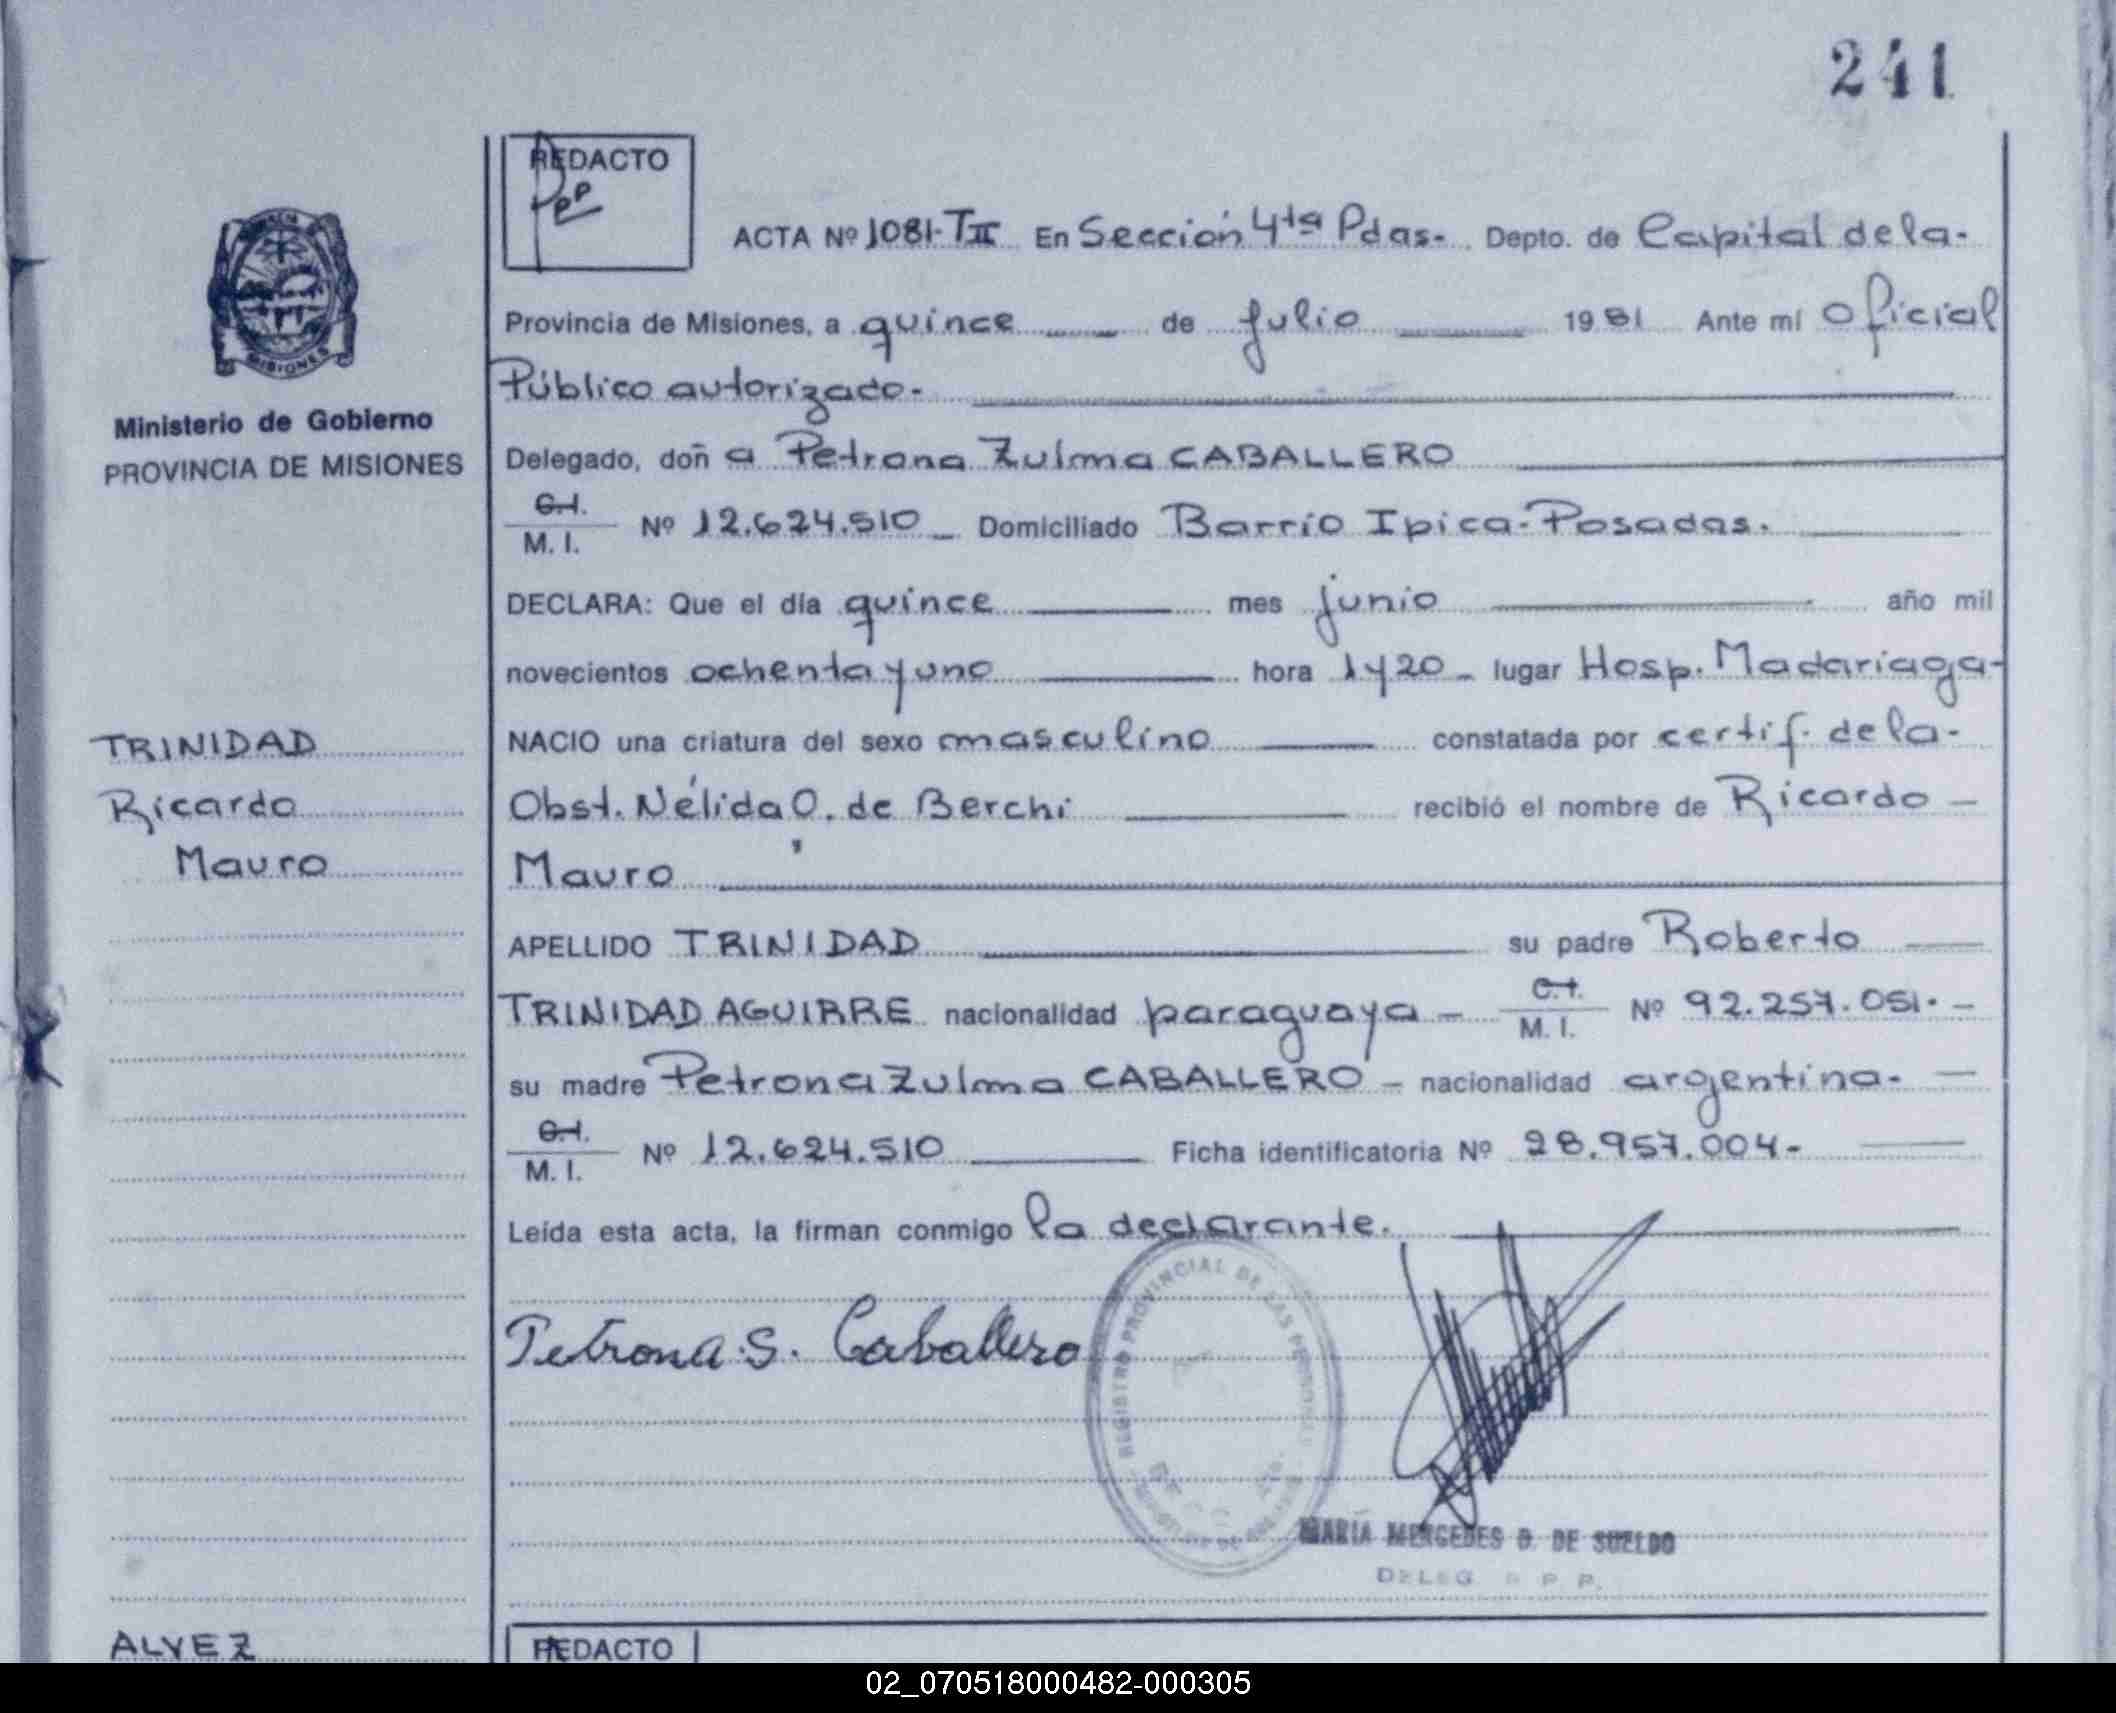 241
REDACTO
ACTA Nº 1081-TII En Sección 4ta Pdas.- Depto. de Capital de la-
Provincia de Misiones, a quince de julio 1981 Ante mí Oficial
Público autorizado.-
Ministerio de Gobierno
PROVINCIA DE MISIONES
Delegado, doñ a Petrona Zulma CABALLERO
C.I.
M. I. Nº 12.624.510 - Domiciliado Barrio Ipica-Posadas.
DECLARA: Que el día quince mes junio año mil
novecientos ochenta y uno hora 1 y 20 - lugar Hosp. Madariaga-
NACIO una criatura del sexo masculino constatada por certif. de la-
Obst. Nélida O. de Berchi recibió el nombre de Ricardo -
Mauro
TRINIDAD
Ricardo
Mauro
APELLIDO TRINIDAD su padre Roberto
TRINIDAD AGUIRRE nacionalidad paraguaya - C.I.
M. I. Nº 92.257.051.-
su madre Petrona Zulma CABALLERO - nacionalidad argentina.-
C.I.
M. I. Nº 12.624.510 Ficha identificatoria Nº 28.957.004-
Leída esta acta, la firman conmigo la declarante.
Petrona S. Caballero
REGISTRO PROVINCIAL DE LAS PERSONAS
MARIA MERCEDES D. DE SUELDO
DELEG. R P P.
ALVEZ
REDACTO
02_070518000482-000305